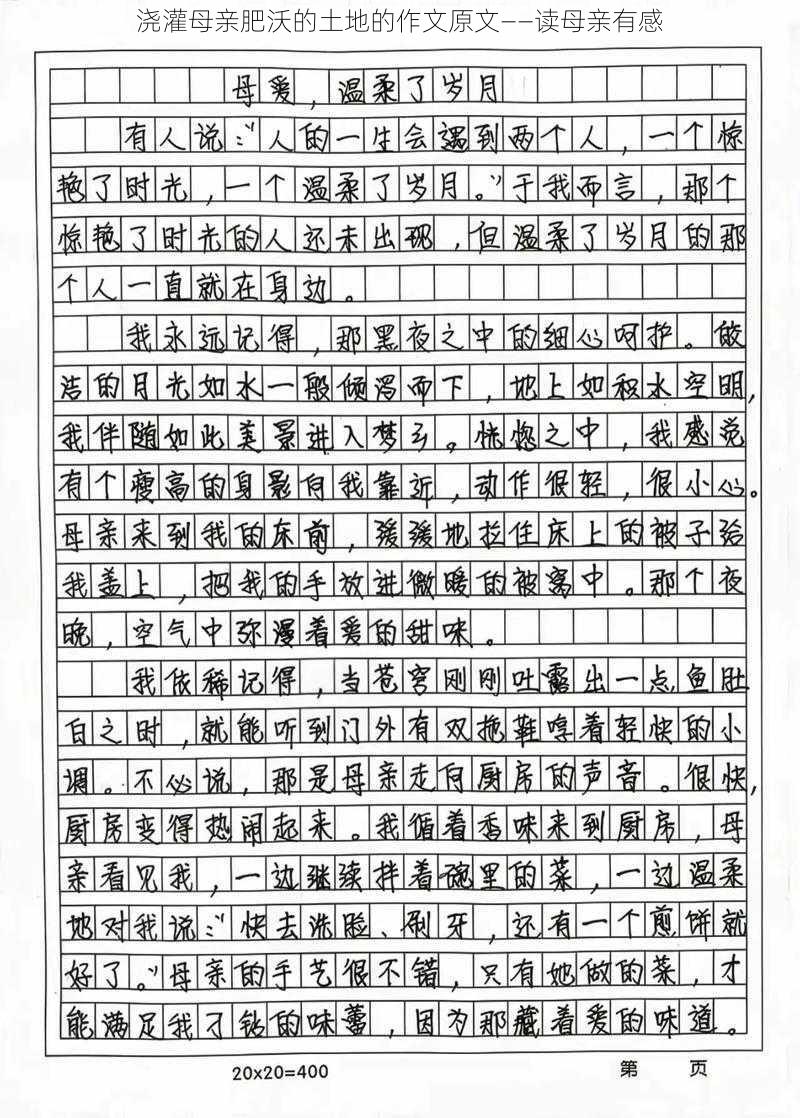 浇灌母亲肥沃的土地的作文原文——读母亲有感
母爱，温柔了岁月
有人说：“人的一生会遇到两个人，一个惊
艳了时光，一个温柔了岁月。”于我而言，那个
惊艳了时光的人还未出现，但温柔了岁月的那
个人一直就在身边。
我永远记得，那黑夜之中的细心呵护。皎
洁的月光如水一般倾泻而下，地上如积水空明，
我伴随如此美景进入梦乡。恍惚之中，我感觉
有个瘦高的身影向我靠近，动作很轻，很小心。
母亲来到我的床前，缓缓地拉住床上的被子给
我盖上，把我的手放进微暖的被窝中。那个夜
晚，空气中弥漫着爱的甜味。
我依稀记得，当苍穹刚刚吐露出一点鱼肚
白之时，就能听到门外有双拖鞋哼着轻快的小
调。不必说，那是母亲走向厨房的声音。很快，
厨房变得热闹起来。我循着香味来到厨房，母
亲看见我，一边继续拌着碗里的菜，一边温柔
地对我说：“快去洗脸、刷牙，还有一个煎饼就
好了。”母亲的手艺很不错，只有她做的菜，才
能满足我刁钻的味蕾，因为那藏着爱的味道。
20×20=400
第 页